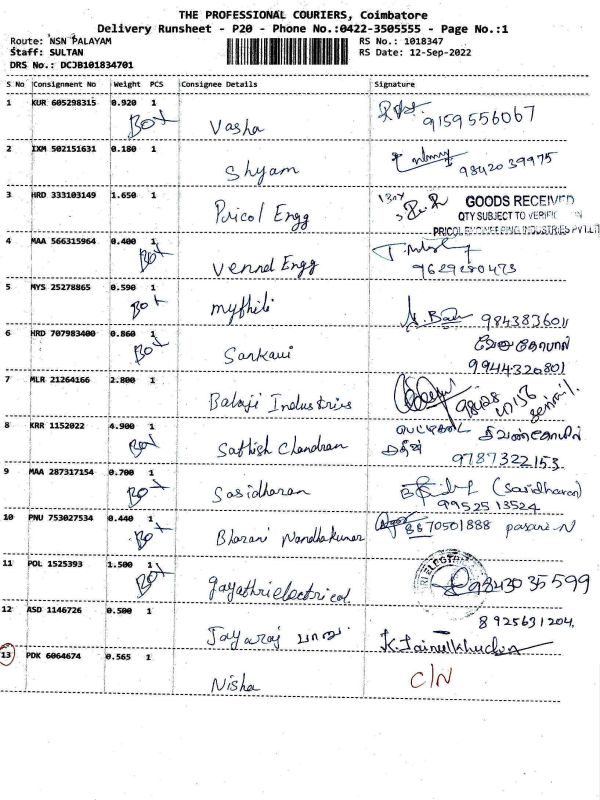 THE PROFESSIONAL COURIERS, Coimbatore
Delivery Runsheet - P20 - Phone No.:0422-3505555 - Page No.:1
Route: NSN PALAYAM RS No.: 1018347
Staff: SULTAN RS Date: 12-Sep-2022
DRS No.: DCJB101834701
S No Consignment No Weight PCS Consignee Details Signature
1 KUR 605298315 0.920 1
Box Vasha 9159556067
2 IXM 502151631 0.180 1
Shyam 9842039975
3 HRD 333103149 1.650 1
Pricol Engg GOODS RECEIVED
QTY SUBJECT TO
PRICOL ENGINEERING INDUSTRIES PVT.LT
4 MAA 566315964 0.400 1
Box Vennel Engg 9629280473
5 MYS 25278865 0.590 1
Box mythili 9843836011
6 HRD 707983400 0.860 1
Box Sankavi வேணுகோபால்
9944320801
7 MLR 21264166 2.800 1
Balaji Industries 98428
8 KRR 1152022 4.900 1
Box Sathish Chandran
9787322153
9 MAA 287317154 0.700 1
Box Sasidharan (Sasidharan)
9952513524
10 PNU 753027534 0.440 1
Box Bharani Nandhakumar 8870501888
11 POL 1525393 1.500 1
Box gayathrielectrical 9843035599
12 ASD 1146726 0.500 1
Jayaraj 8925631204
13 PDK 6064674 0.565 1
Nisha C/N